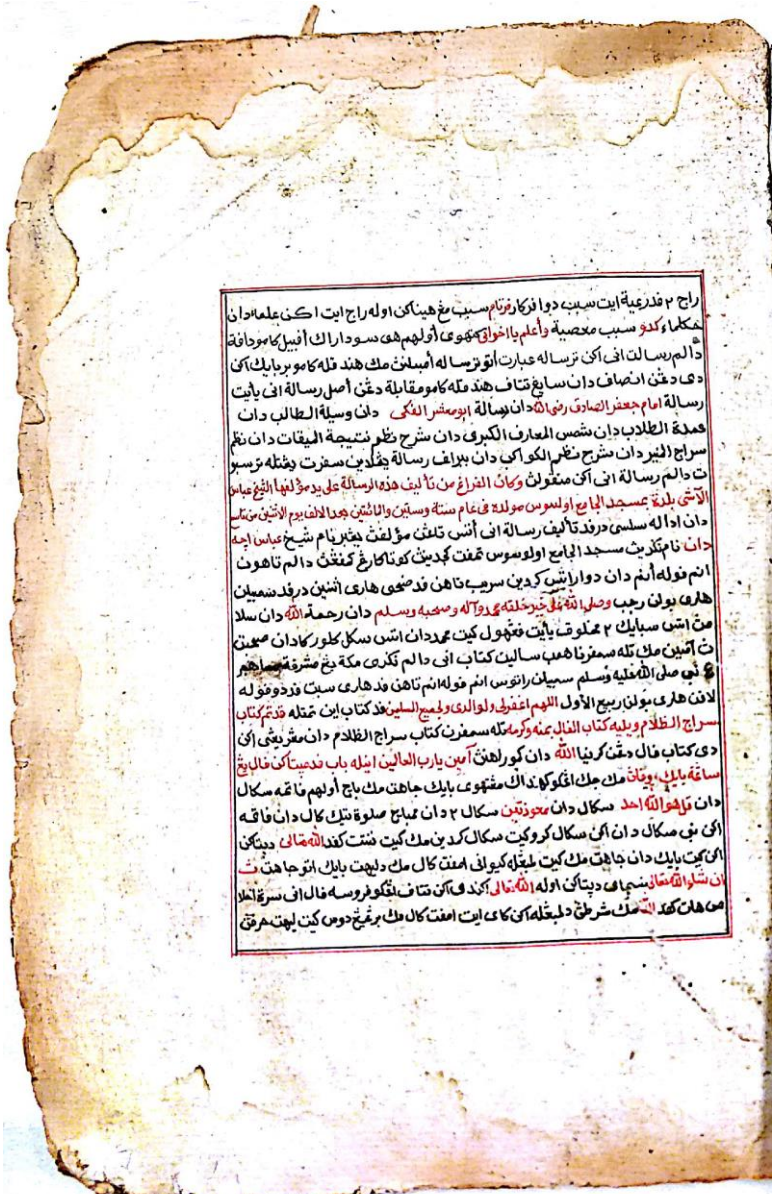 راج ٢ فدرعية ايت سبب دوا فركار فرتام سبب مڠهيناكن اوله راج ايت اكن علماء دان
حكماء كدو سبب معصية وأعلم يا اخواني كتهوي أولهم هي سودارا٢ك أفبيل كامو دافة
دالم رسالت اني اكن ترساله عبارت أتو ترساله أمبيلن مك هندقله كامو بربايك اكن
دي دڠن انصاف دان سايغ تتاف هندقله كامو مقابلة دڠن أصل رسالة اني يأيت
رسالة امام جعفر الصادق رضي الله دان رسالة ابو معشر الفلكي دان وسيلة الطالب دان
عمدة الطلاب دان شمس المعارف الكبرى دان شرح نظم نتيجة الميقات دان نظم
سراج المنير دان شرح نظم الكواكب دان ببراف رسالة يڠلاين سفرت يڠتله ترسبو
ت دالم رسالة اني اكن منقولن وكان الفراغ من تأليف هذه الرسالة على يد مؤلفها الشيخ عباس
الآشي بلدة بمسجد الجامع اولسوس مولده في عام ستة وستين والمائتين بعد الالف يوم الاثنين من
دان اداله سلسي درفد تأليف رسالة اني أتس تاڠن مؤلفڽ يڠبرنام شيخ عباس اچه
دان نام نكريڽ مسجد الجامع اولوسوس تمفت كجدين كوتاكارڠ كفڠڽ دالم تاهون
انم فوله أنم دان دوا راتس كمدين سريب تاهن قد ضحى هاري اثنين درفد سمبيلن
هاري بولن رجب وصلى الله على خير خلقه محمد وآله وصحبه وسلم دان رحمة الله دان سلا
من اتس سبايك ٢ مخلوق يأيت فڠهولو كيت محمد دان اتس سكل كلورگا دان صحبت
ڽ أمين مك تله سمفرنا همب سالين كتاب اني دالم نكري مكة يڠ مشرفة
نبي صلى الله عليه وسلم سمبيلن راتوس انم فوله انم تاهن قد هاري سبت قد دو فوله
لافن هاري بولن ربيع الأول اللهم اغفر لي ولوالدي ولجميع المسلمين قد كتاب اين تمتله قد تم كتاب
سراج الظلام ويليه كتاب الفال بمنه وكرمه تله سمفرن كتاب سراج الظلام دان مڠريڠي اكن
دي كتاب فال دڠن كرنيا الله دان كموراهنڽ آمين يارب العالمين اينله باب فد مپتاكن فال يڠ
ساڠة بايك مك جك اڠكو كهنداك مڠتهوي بايك جاهت مك باچ أولهم فاتحه سكال
دان قل هو الله احد سكال دان معوذتين سكال ٢ دان ممباچ صلوة تيڬ كال دان فاتحه
اكن نبي سكال دان اكن سكال ڬورو كيت سكال كمدين مك كيت نيت كفد الله تعالى دپتاكن
اكن كيت بايك دان جاهت مك كيت لمبڠله كيو اني امفت كال مك دليهت بايك اتو جاهت ڽ
ان شاء الله تعالى نسچاي دپتاكن اوله الله تعالى اكندي اكن تتاف اڠكو فروسه فال اني سرة اخلا
ص هات كفد الله مك شرطڽ دلمبڠله اكن كاي ايت امفت كال مك برتمڠ دوس كيت ليهت حرفڽ